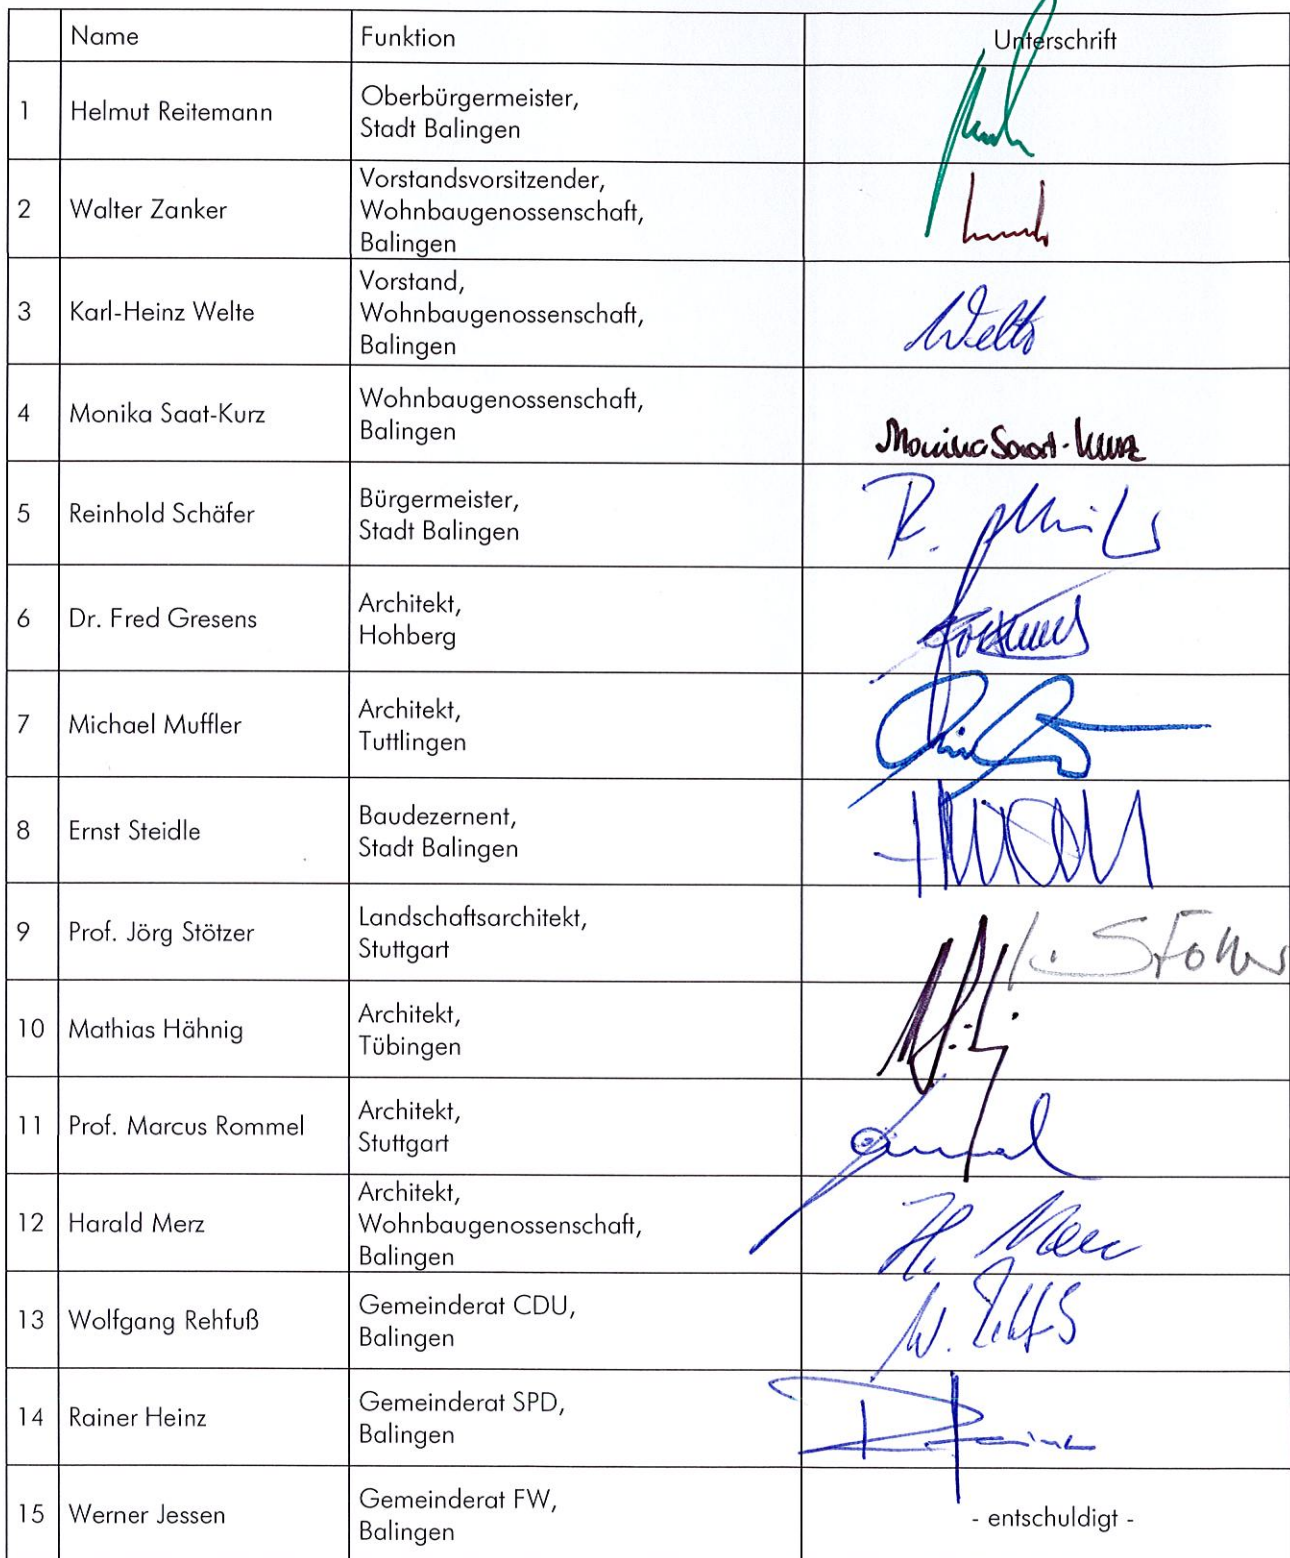 Name Funktion Unterschrift
1 Helmut Reitemann Oberbürgermeister,
Stadt Balingen
2 Walter Zanker Vorstandsvorsitzender,
Wohnbaugenossenschaft,
Balingen
3 Karl-Heinz Welte Vorstand,
Wohnbaugenossenschaft,
Balingen
Welte
4 Monika Saat-Kurz Wohnbaugenossenschaft,
Balingen
Monika Saat-Kurz
5 Reinhold Schäfer Bürgermeister,
Stadt Balingen
6 Dr. Fred Gresens Architekt,
Hohberg
7 Michael Muffler Architekt,
Tuttlingen
8 Ernst Steidle Baudezernent,
Stadt Balingen
9 Prof. Jörg Stötzer Landschaftsarchitekt,
Stuttgart
10 Mathias Hähnig Architekt,
Tübingen
11 Prof. Marcus Rommel Architekt,
Stuttgart
12 Harald Merz Architekt,
Wohnbaugenossenschaft,
Balingen
H. Merz
13 Wolfgang Rehfuß Gemeinderat CDU,
Balingen
14 Rainer Heinz Gemeinderat SPD,
Balingen
15 Werner Jessen Gemeinderat FW,
Balingen
- entschuldigt -